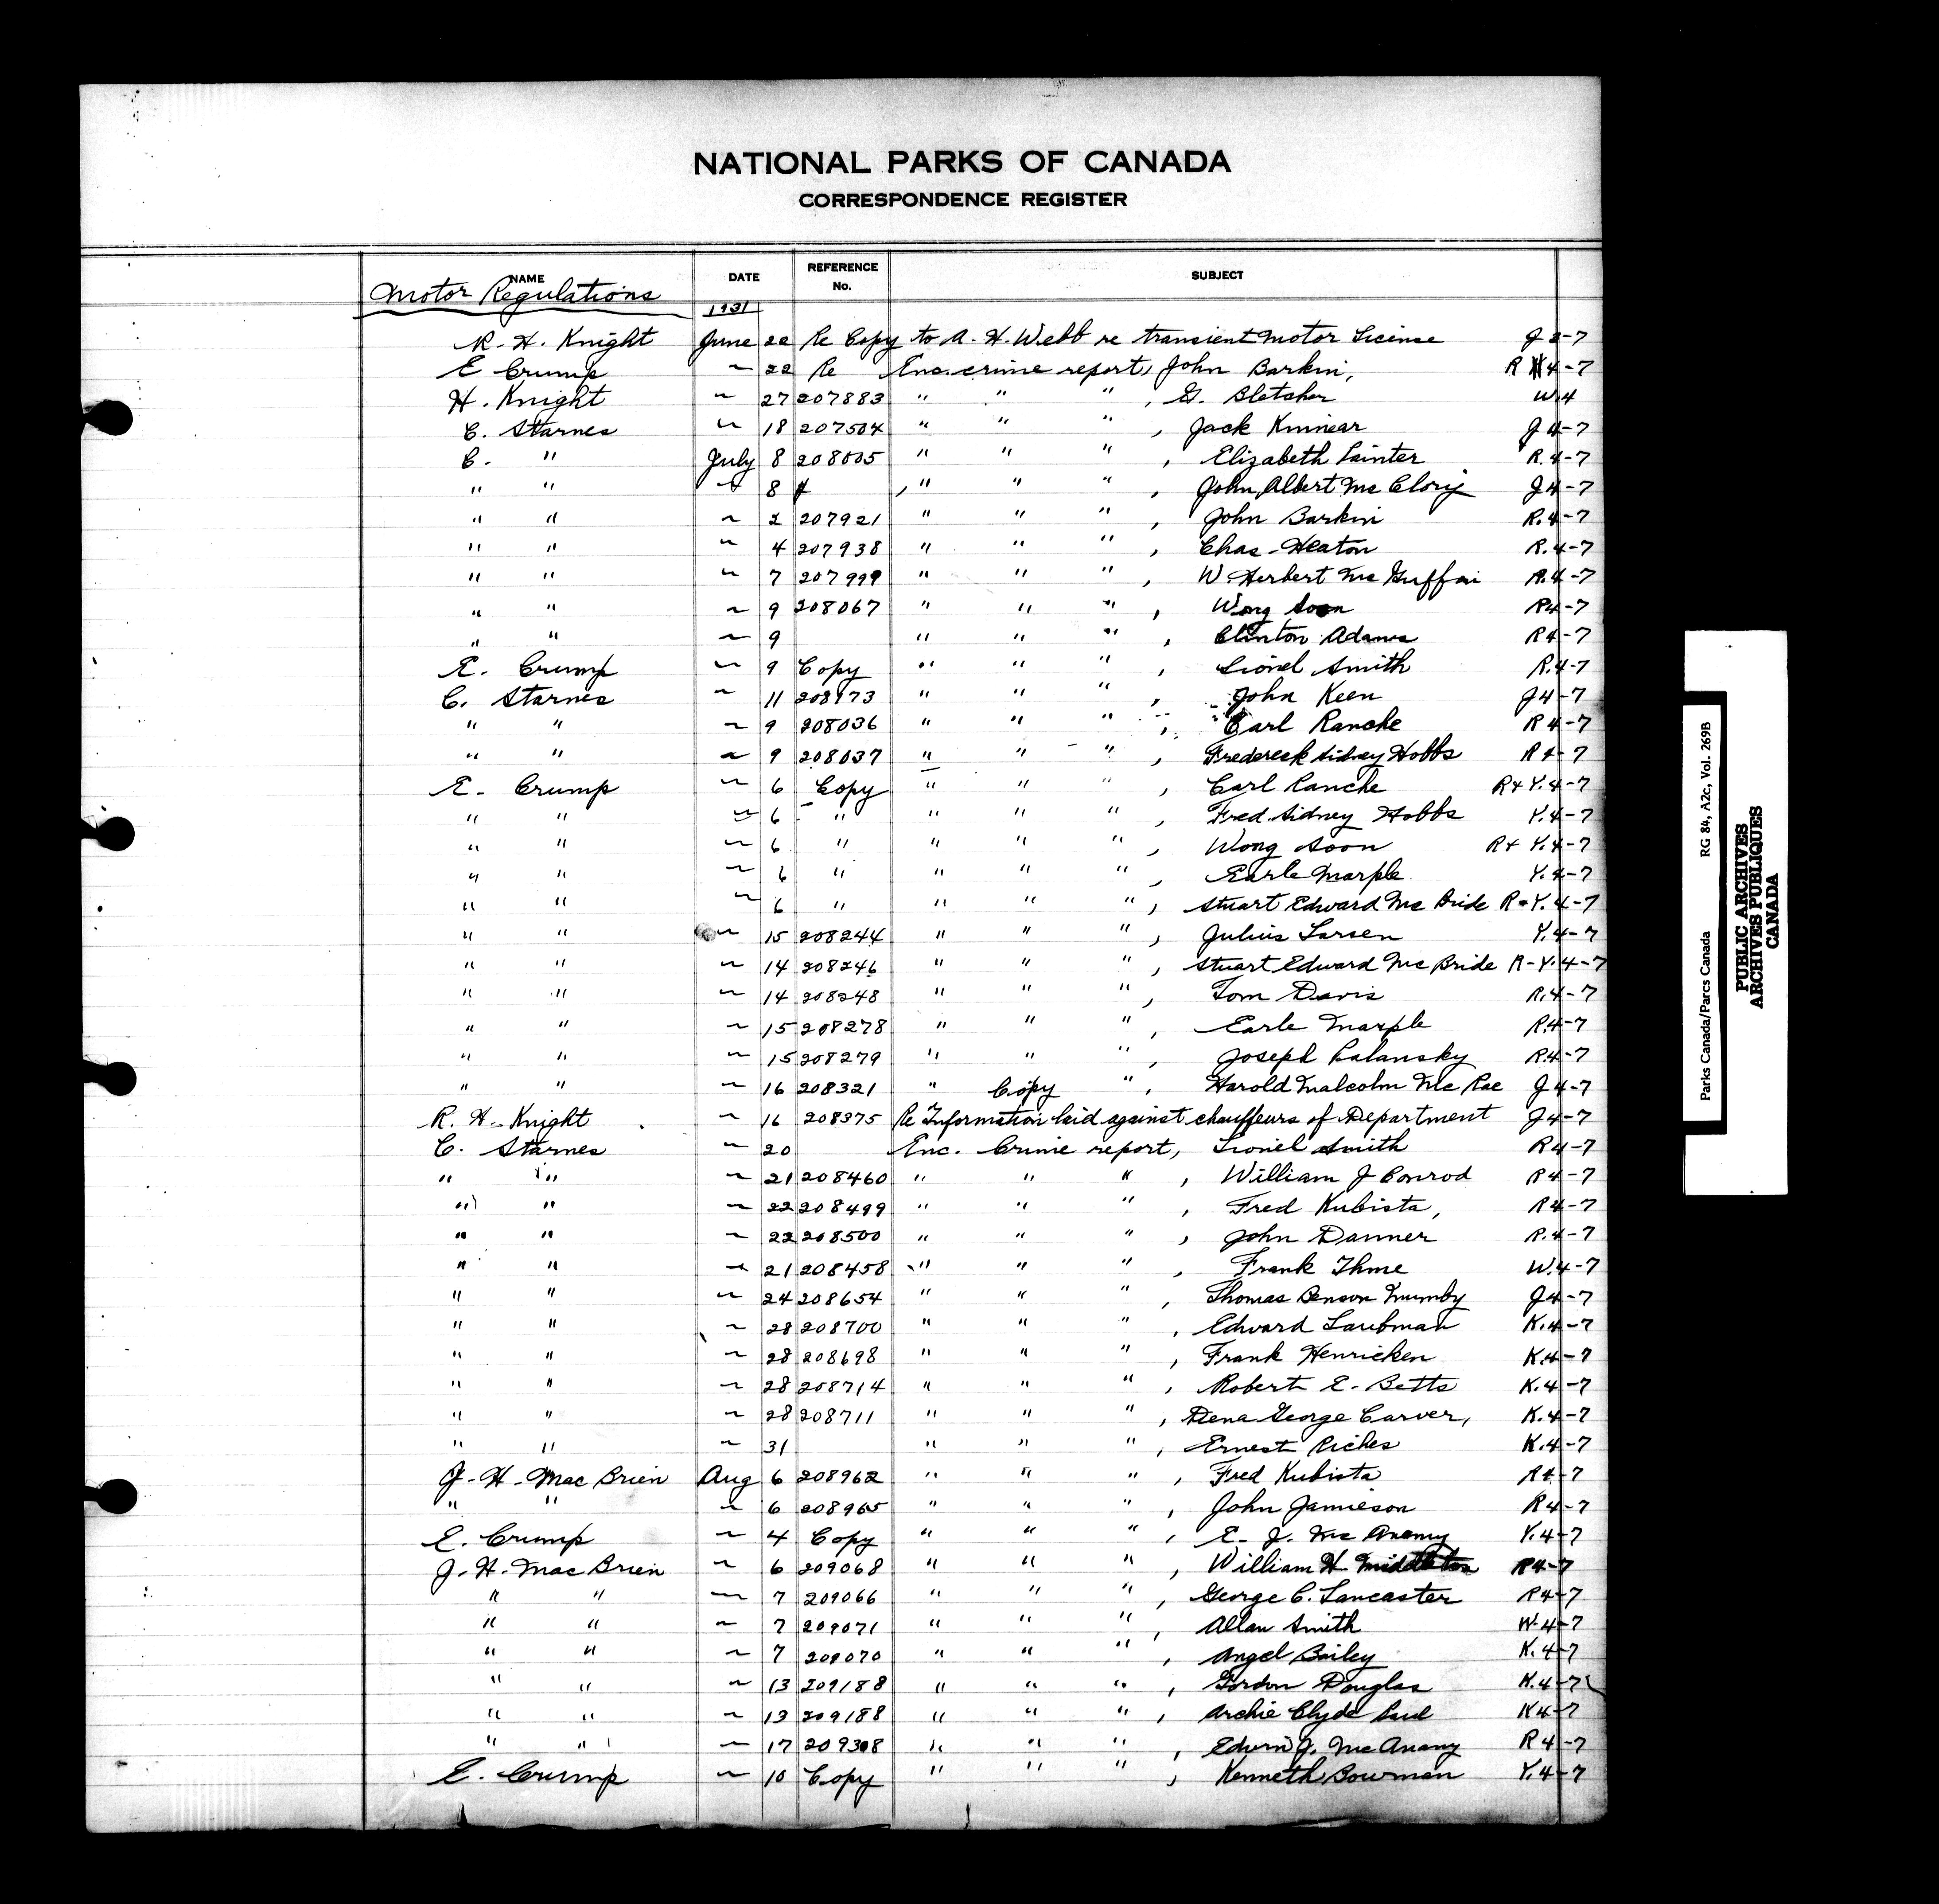 NATIONAL PARKS OF CANADA
CORRESPONDENCE REGISTER
NAME DATE REFERENCE No. SUBJECT
Motor Regulations
1931
R. H. Knight June 22 Re Copy to A. H. Webb re transient motor License J 2-7
E Crump ~ 22 Re Enc. crime report, John Barkin, R 4-7
H. Knight ~ 27 207883 " " " , G. Bletcher W.4
C. Starnes ~ 18 207504 " " " , Jack Kinnear J 4-7
C. " July 8 208005 " " " , Elizabeth Painter R.4-7
" " ~ 8 " " " , John Albert Mc Clory J 4-7
" " ~ 2 207921 " " " , John Barkin R.4-7
" " ~ 4 207938 " " " , Chas. Heaton R.4-7
" " ~ 7 207999 " " " , W. Herbert Mc Guffin R.4-7
" " ~ 9 208067 " " " , Wong Soon R4-7
" " ~ 9 " " " , Clinton Adams R4-7
E. Crump ~ 9 Copy " " " , Lionel Smith R.4-7
C. Starnes ~ 11 208173 " " " , John Keen J 4-7
" " ~ 9 208036 " " " , Earl Ranche R 4-7
" " ~ 9 208037 " " " , Frederick Sidney Hobbs R 4-7
E. Crump ~ 6 Copy " " " , Carl Ranche R+Y.4-7
" " ~ 6 " " " " , Fred. Sidney Hobbs Y.4-7
" " ~ 6 " " " " , Wong Soon R+Y.4-7
" " ~ 6 " " " " , Earle Marple Y.4-7
" " ~ 6 " " " " , Stuart Edward Mc Bride R+Y.4-7
" " ~ 15 208244 " " " , Julius Larsen Y.4-7
" " ~ 14 208246 " " " , Stuart Edward Mc Bride R-Y.4-7
" " ~ 14 208248 " " " , Tom Davis R.4-7
" " ~ 15 208278 " " " , Earle Marple R.4-7
" " ~ 15 208279 " " " , Joseph Palansky R.4-7
" " ~ 16 208321 " Copy " , Harold Malcolm Mc Rae J 4-7
R. H. Knight ~ 16 208375 Re Information laid against chauffeurs of Department J 4-7
C. Starnes ~ 20 Enc. Crime report, Lionel Smith R4-7
" " ~ 21 208460 " " " , William J Conrod R 4-7
" " ~ 22 208499 " " " , Fred Kubista, R4-7
" " ~ 22 208500 " " " , John Danner R.4-7
" " ~ 21 208458 " " " , Frank Thme W.4-7
" " ~ 24 208654 " " " , Thomas Benson Mumby J 4-7
" " ~ 28 208700 " " " , Edward Laubman K.4-7
" " ~ 28 208698 " " " , Frank Henricken K.4-7
" " ~ 28 208714 " " " , Robert E. Betts K.4-7
" " ~ 28 208711 " " " , Dena George Carver, K.4-7
" " ~ 31 " " " , Ernest Riches K.4-7
J. H. Mac Brien Aug 6 208962 " " " , Fred Kubista R4-7
" " ~ 6 208965 " " " , John Jamieson R4-7
E. Crump ~ 4 Copy " " " , E. J. Mc Anany Y.4-7
J. H. Mac Brien ~ 6 209068 " " " , William H. Middleton R4-7
" " ~ 7 209066 " " " , George C. Lancaster R4-7
" " ~ 7 209071 " " " , Allan Smith W.4-7
" " ~ 7 209070 " " " , Angel Bailey K.4-7
" " ~ 13 209188 " " " , Gordon Douglas K.4-7
" " ~ 13 209188 " " " , Archie Clyde Paul K4-7
" " ~ 17 209308 " " " , Edwin J. Mc Anany R 4-7
E. Crump ~ 10 Copy " " " , Kenneth Bowman Y.4-7
Parks Canada/Parcs Canada RG 84, A2c, Vol. 269B
PUBLIC ARCHIVES
ARCHIVES PUBLIQUES
CANADA